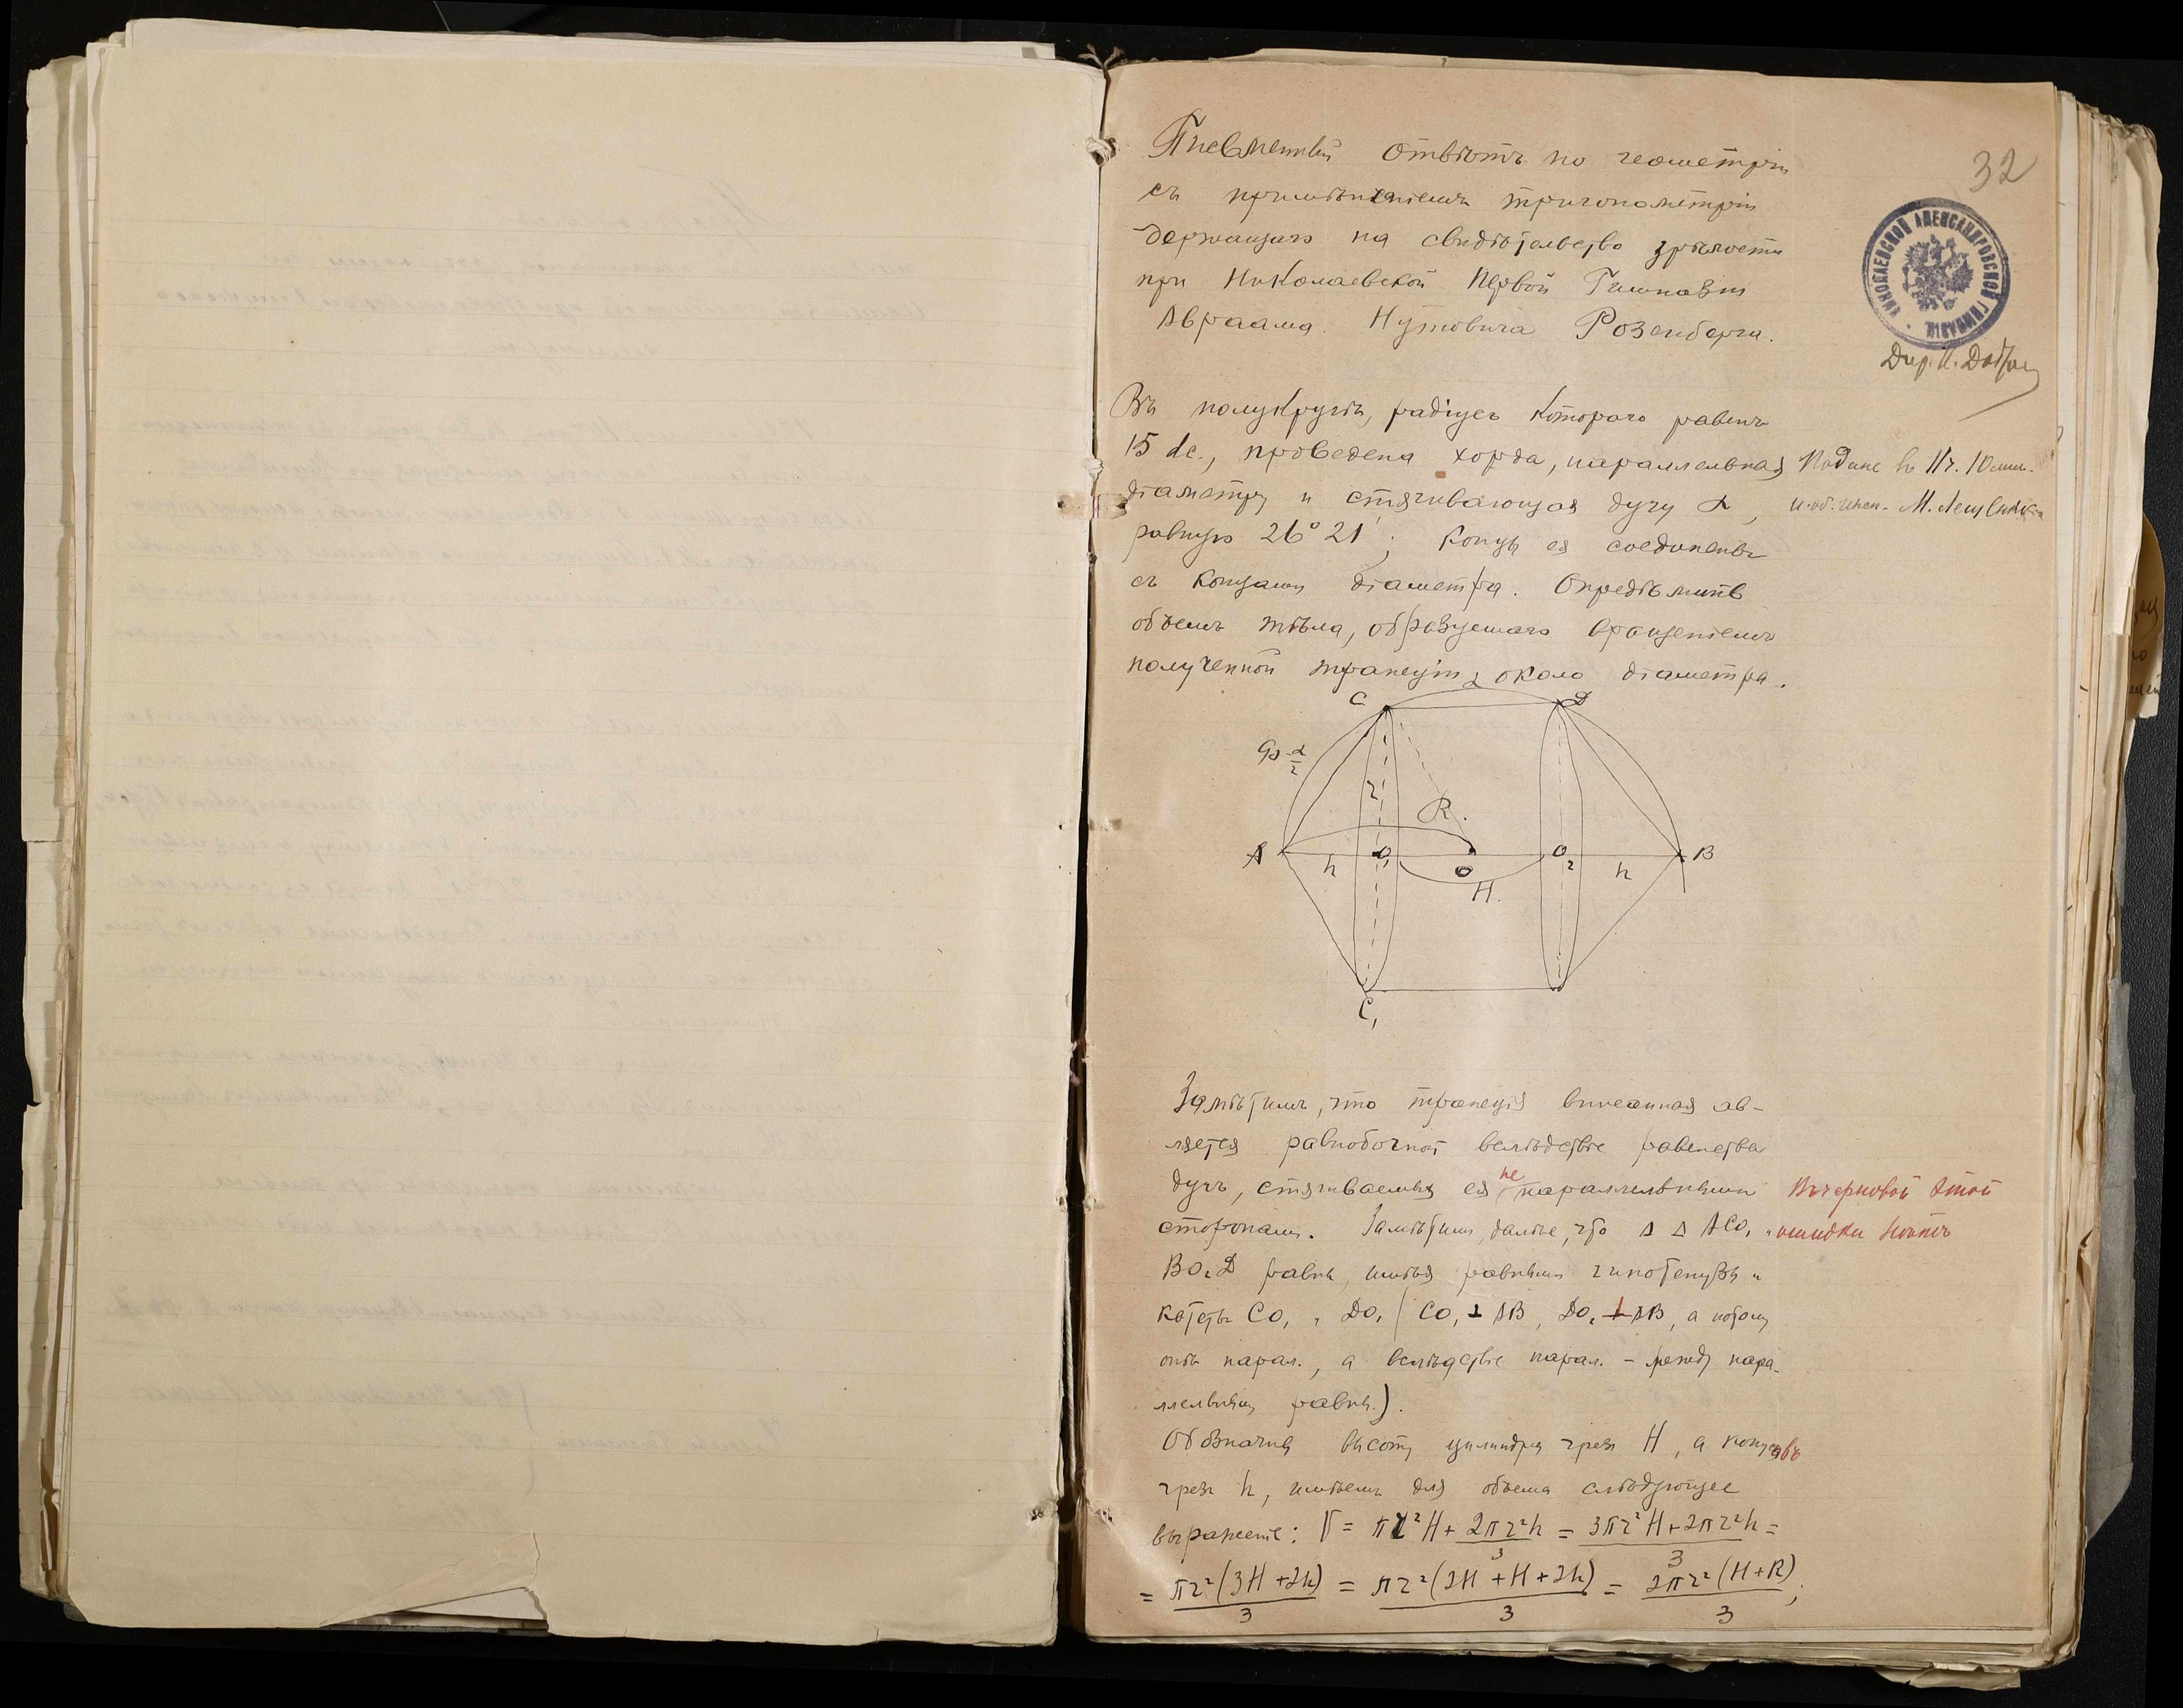 32
Письменный отвѣтъ по геометріи
съ примѣненіемъ тригонометріи
держащаго на свидѣтельство зрѣлости
при Николаевской Первой Гимназіи
Авраама Нутовича Розенберга.
НИКОЛАЕВСКОЙ АЛЕКСАНДРОВСКОЙ ГИМНАЗІИ
Дир. И.
Въ полукругѣ, радіусъ котораго равенъ
15 dc., проведена хорда, параллельная
Подано въ 11 ч. 10 мин.
діаметру и стягивающая дугу α,
равную 26° 21′; концы ея соединены
съ концами діаметра. Опредѣлить
объемъ тѣла, образуемаго вращеніемъ
полученной трапеціи около діаметра.
C α D
90-α/2
r R.
A h O₁ O O₂ h B
H.
C₁
Замѣтимъ, что трапеція вписанная яв-
ляется равнобочной вслѣдствіе равенства
дугъ, стягиваемыхъ ея не параллельными
Въ черновой этой
сторонами. Замѣтимъ, далѣе, что Δ Δ ACO₁ и
ошибки нѣтъ
BO₂D равны, имѣя равными гипотенузы и
катеты CO₁ и DO₂ (CO₁ ⊥ AB, DO₂ ⊥ AB, а потому
онѣ парал., а вслѣдствіе парал. - между пара-
ллельными равны).
Обозначив высоту цилиндра чрезъ H, а конусовъ
чрезъ h, имѣемъ для объема слѣдующее
выраженіе: V = πr²H + 2πr²h/3 = (3πr²H + 2πr²h)/3 =
= πr²(3H + 2h)/3 = πr²(2H + H + 2h)/3 = 2πr²(H + R)/3;